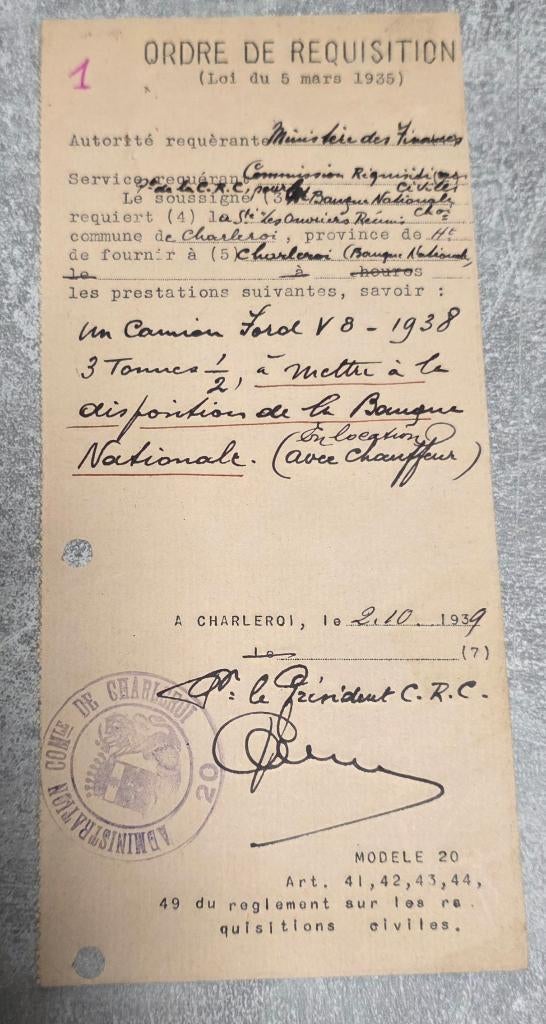 1
ORDRE DE REQUISITION
(Loi du 5 mars 1935)
Autorité requèrante Ministère des Finances
Service requérant Commission Réquisitions civiles
Pt de la C.R.C, pour la Banque Nationale
Le soussigné (3)
requiert (4) la Sté Les Ouvriers Réunis Choi
commune de Charleroi, province de Ht
de fournir à (5) Charleroi (Banque Nationale)
le à heures
les prestations suivantes, savoir :
un Camion Ford V8 - 1938
3 Tonnes 1/2, à mettre à la
disposition de la Banque
Nationale. (avec Chauffeur)
En location
A CHARLEROI, le 2.10. 1939
le (7)
Pr. le Président C.R.C.
ADMINISTRATION COMLE DE CHARLEROI
20
MODELE 20
Art. 41,42,43,44,
49 du reglement sur les re
quisitions civiles.